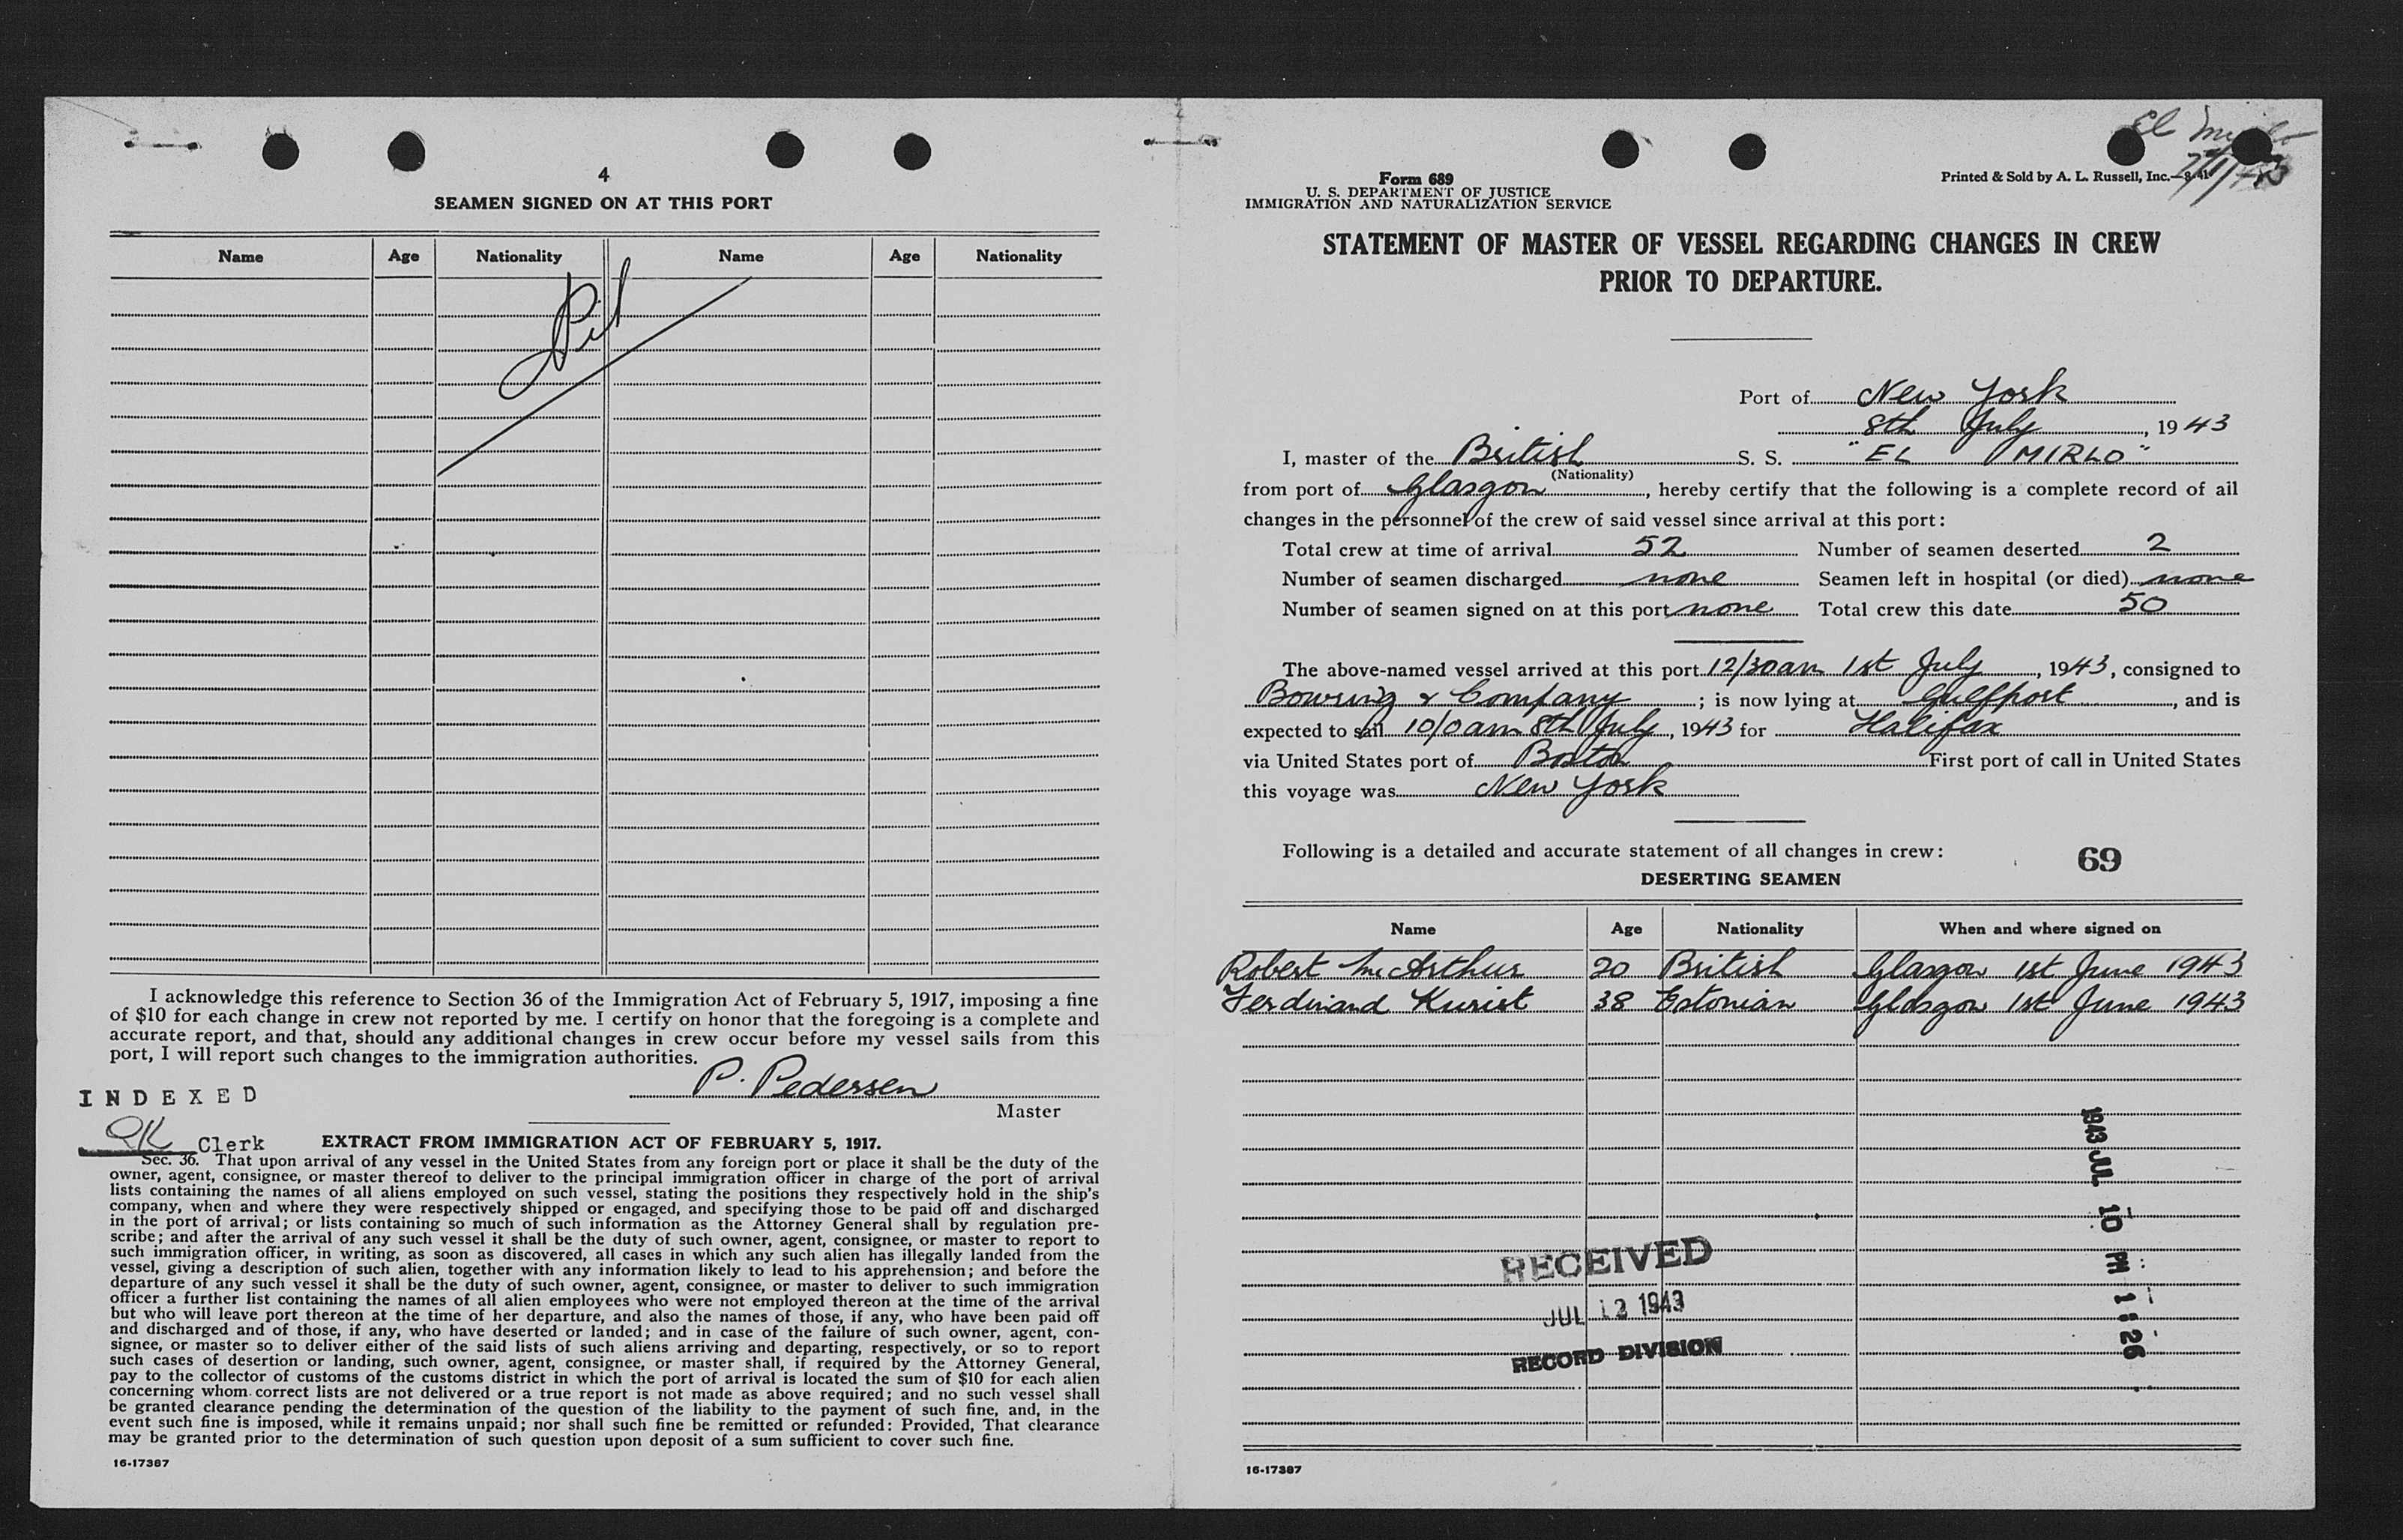 4
SEAMEN SIGNED ON AT THIS PORT
Name Age Nationality Name Age Nationality
Nil
I acknowledge this reference to Section 36 of the Immigration Act of February 5, 1917, imposing a fine
of $10 for each change in crew not reported by me. I certify on honor that the foregoing is a complete and
accurate report, and that, should any additional changes in crew occur before my vessel sails from this
port, I will report such changes to the immigration authorities.
P. Pedersen
Master
INDEXED
Clerk
EXTRACT FROM IMMIGRATION ACT OF FEBRUARY 5, 1917.
Sec. 36. That upon arrival of any vessel in the United States from any foreign port or place it shall be the duty of the
owner, agent, consignee, or master thereof to deliver to the principal immigration officer in charge of the port of arrival
lists containing the names of all aliens employed on such vessel, stating the positions they respectively hold in the ship's
company, when and where they were respectively shipped or engaged, and specifying those to be paid off and discharged
in the port of arrival; or lists containing so much of such information as the Attorney General shall by regulation pre-
scribe; and after the arrival of any such vessel it shall be the duty of such owner, agent, consignee, or master to report to
such immigration officer, in writing, as soon as discovered, all cases in which any such alien has illegally landed from the
vessel, giving a description of such alien, together with any information likely to lead to his apprehension; and before the
departure of any such vessel it shall be the duty of such owner, agent, consignee, or master to deliver to such immigration
officer a further list containing the names of all alien employees who were not employed thereon at the time of the arrival
but who will leave port thereon at the time of her departure, and also the names of those, if any, who have been paid off
and discharged and of those, if any, who have deserted or landed; and in case of the failure of such owner, agent, con-
signee, or master so to deliver either of the said lists of such aliens arriving and departing, respectively, or so to report
such cases of desertion or landing, such owner, agent, consignee, or master shall, if required by the Attorney General,
pay to the collector of customs of the customs district in which the port of arrival is located the sum of $10 for each alien
concerning whom correct lists are not delivered or a true report is not made as above required; and no such vessel shall
be granted clearance pending the determination of the question of the liability to the payment of such fine, and, in the
event such fine is imposed, while it remains unpaid; nor shall such fine be remitted or refunded: Provided, That clearance
may be granted prior to the determination of such question upon deposit of a sum sufficient to cover such fine.
16-17387
El Mirlo
Form 689
U. S. DEPARTMENT OF JUSTICE
IMMIGRATION AND NATURALIZATION SERVICE
Printed & Sold by A. L. Russell, Inc.—8-41
7/1/43
STATEMENT OF MASTER OF VESSEL REGARDING CHANGES IN CREW
PRIOR TO DEPARTURE.
Port of New York
8th July, 1943
I, master of the British S. S. "EL MIRLO"
(Nationality)
from port of Glasgow, hereby certify that the following is a complete record of all
changes in the personnel of the crew of said vessel since arrival at this port:
Total crew at time of arrival 52 Number of seamen deserted 2
Number of seamen discharged none Seamen left in hospital (or died) none
Number of seamen signed on at this port none Total crew this date 50
The above-named vessel arrived at this port 12/30am 1st July, 1943, consigned to
Bowring & Company; is now lying at Gulfport, and is
expected to sail 10/0am 8th July, 1943 for Halifax
via United States port of Boston First port of call in United States
this voyage was New York
Following is a detailed and accurate statement of all changes in crew:
69
DESERTING SEAMEN
Name Age Nationality When and where signed on
Robert McArthur 20 British Glasgow 1st June 1943
Ferdinand Kurist 38 Estonian Glasgow 1st June 1943
1943 JUL 10 PM 1:26
RECEIVED
JUL 12 1943
RECORD DIVISION
16-17387